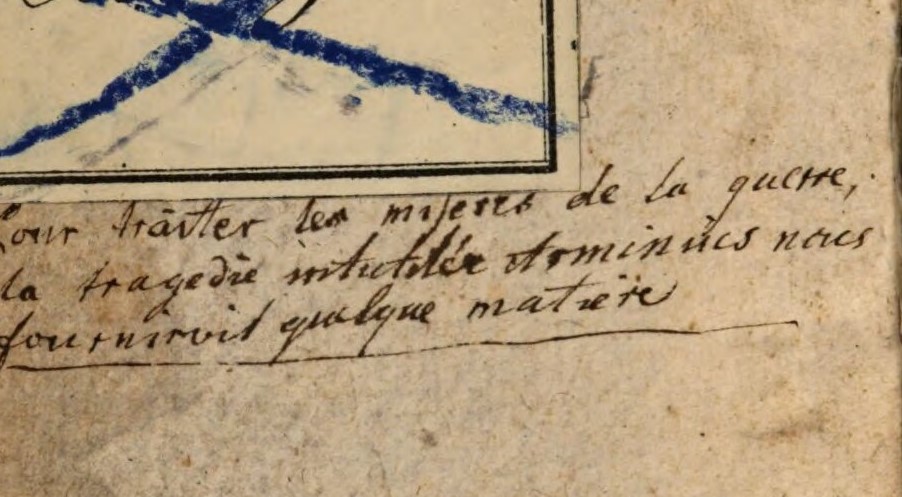 Pour traiter les miseres de la guerre,
la tragedie intitulée Arminius nous
fourniroit quelque matiere